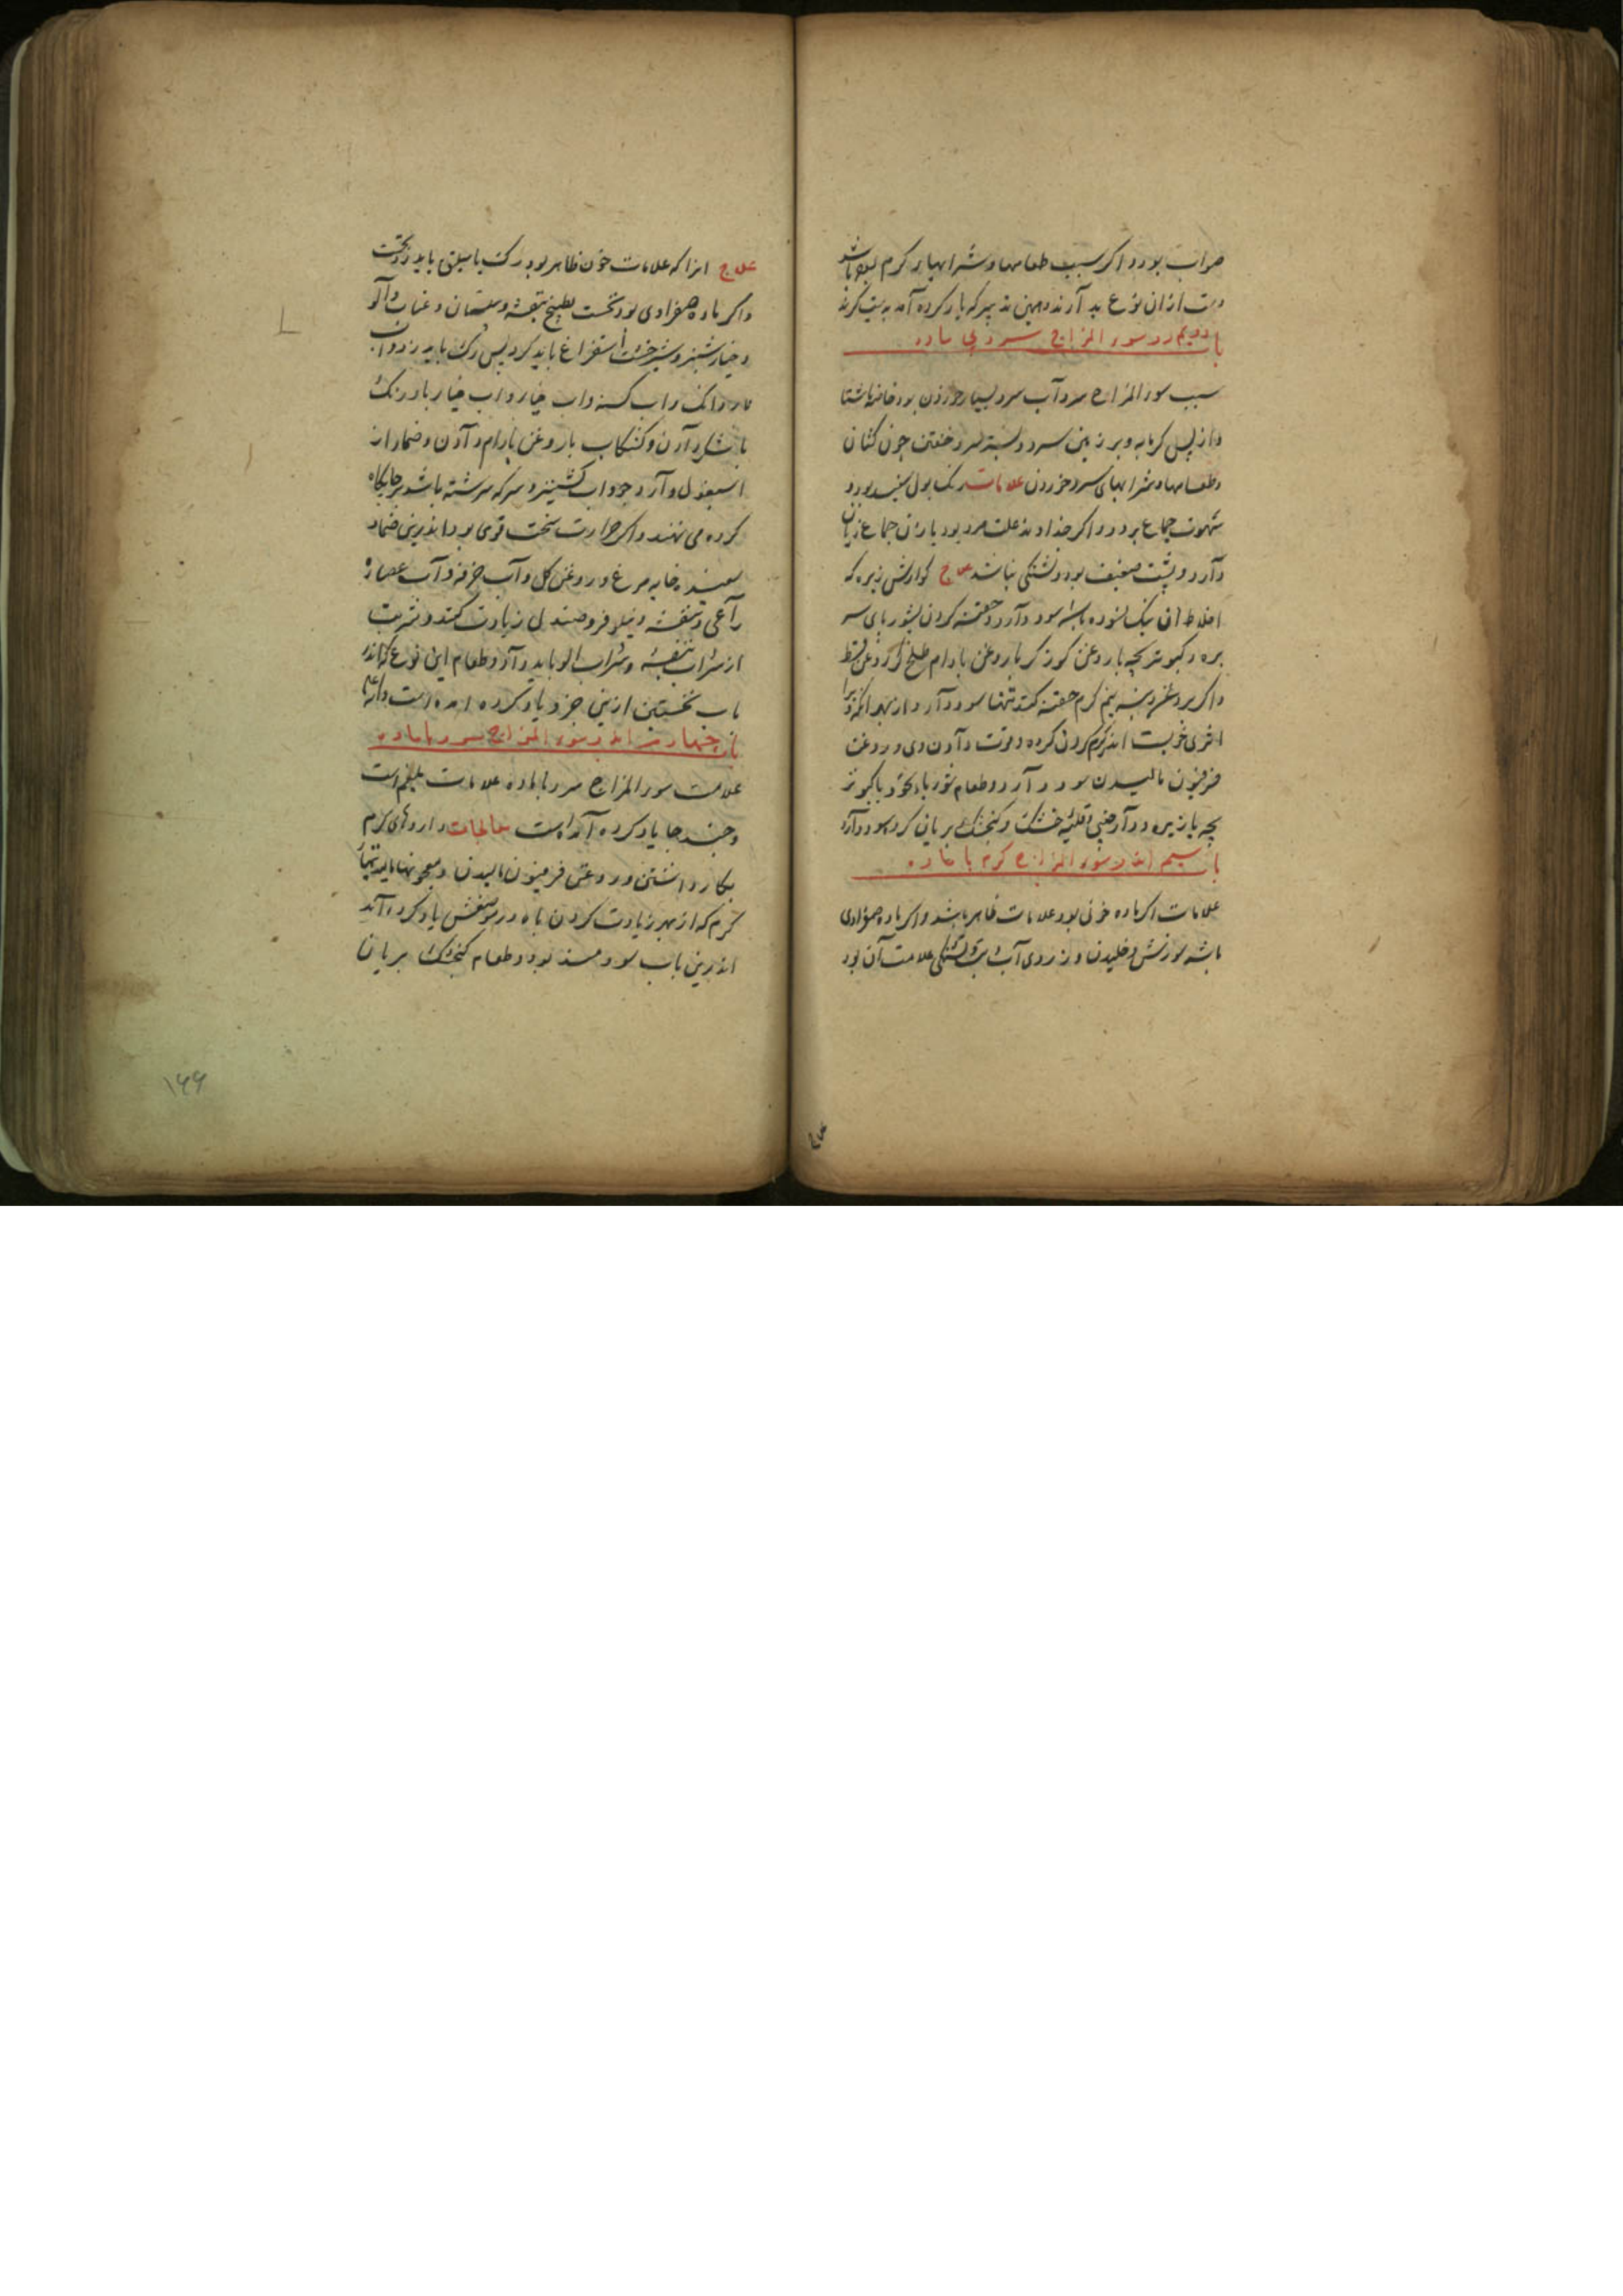 صواب بود و اکر سبب طعامها و شرابهای کرم بوده باشد
دست ازان نوع بدارند و همین تدبیر که یاد کرده آمد بدست کیرند
باب دویم در سوء المزاج سرد بی ماده
سبب سوء المزاج سرد آب سرد بسیار خوردن بود خاصه ناشتا
و از پس کرمابه و بر زمین سرد و بستر سرد خفتن چون کتان
و طعامها و شرابهای سرد خوردن علامات رنک بول سپید بود و
شهوت جماع برود و اکر خداوند علت مرد بود یا زن جماع زیان
دارد و پشت ضعیف بود و تشنکی نباشد علاج کوارش زیره که
اخلاط آن نیک سوده باشد سود دارد و حقنه کردن بشوربای سر
بره و کبوتر بچه با روغن کوز کر با روغن بادام طلخ و روغن قسط
و اکر بروغن پنبه نیم کرم حقنه کنند تنها سود دارد از بهر انکه ویرا
اثری خوبست اندر کرم کردن کرده و قوت دادن وی و روغن
فرفیون مالیدن سود دارد و طعام شوربا بنخود با کبوتر
بچه با زیره و دارچینی و قلیه خشک و کنجشک بریان کرده سود دارد
باب سیم اندر سوء المزاج کرم با ماده
علامات اکر ماده خونی بود علامات ظاهر باشد و اکر ماده صفرادی
باشد سوزش و خلیدن و زردی آب و تشنکی علامت آن بود
علاج انرا که علامات خون ظاهر بود رک باسلیق باید زد نخست
و اکر ماده صفرادی بود نخست بطبیخ بنفشه و سپستان و عناب و آلو
و خیارشنبر و شیرخشت استفراغ باید کرد پس رک باید زد و آب
و آب کسنه و اب خیار و اب خیار بادرنک
با شکر دادن و کشکاب با روغن بادام دادن و ضماد از
اسبغول و آرد جو و اب کشنیز و سرکه سرشته باشد بر جایکاه
کرده می نهند و اکر حرارت سخت قوی بود اندرین ضماد
سپیده خایه مرغ و روغن کل و آب خرفه و آب عصاره
راعی و بنفشه و نیلوفر و صندل زیادت کنند و شربت
از شراب بنفشه و شراب الو باید داد و طعام این نوع که اندر
باب نخستین ازین جزو یاد کرده امده است
باب چهارم اندر سوء المزاج سرد با ماده
علامت سوء المزاج سرد با ماده علامات بلغم است
و چند جا یاد کرده آمده است علاجات داروهای کرم
بکار داشتن و روغن فرفیون مالیدن و معجونها
کرم که از بهر زیادت کردن باه در موضعش یاد کرده آمد
اندرین باب سودمند بود و طعام کنجشک بریان
۱۶۶